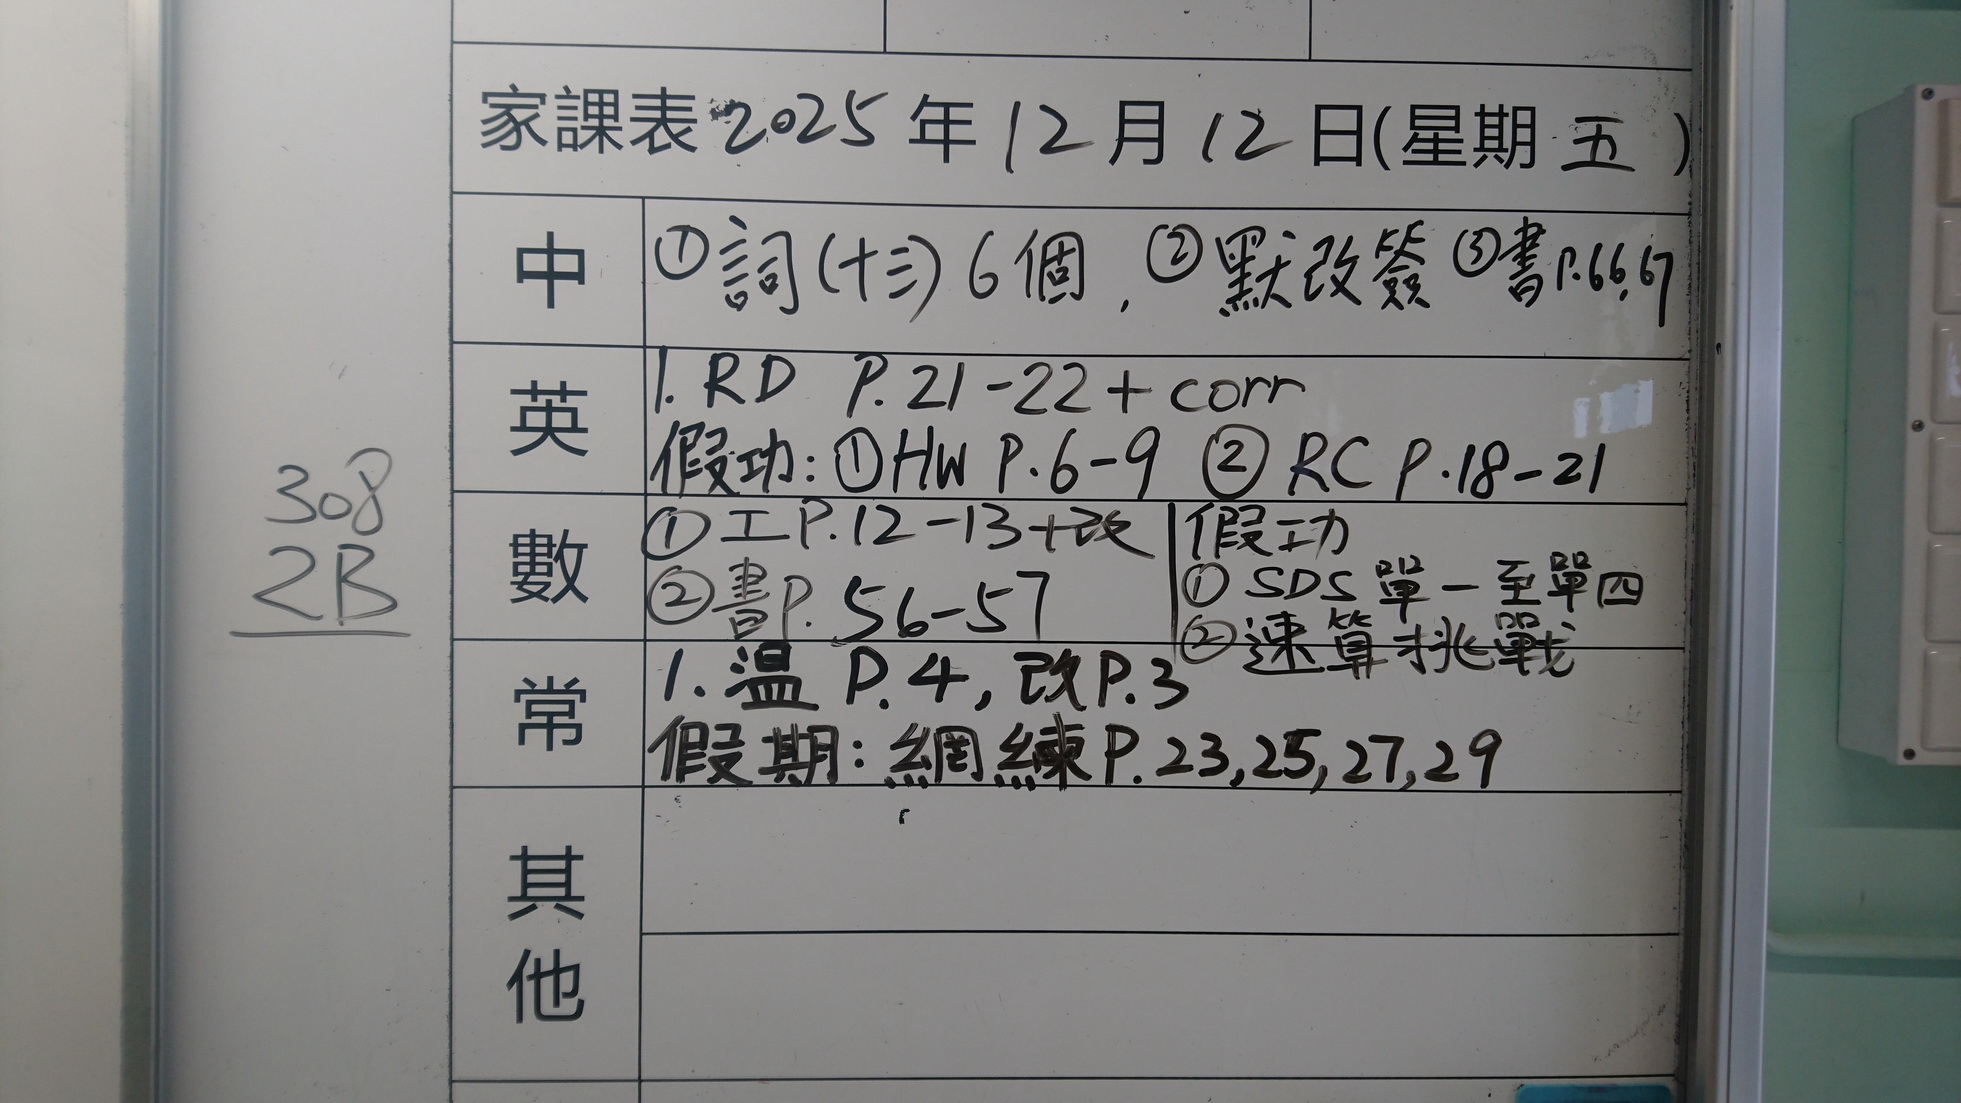 家課表 2025年12月12日(星期五)
中 ①詞(十三)6個, ②默改簽 ③書P.66,67
英 1. RD P.21-22+corr
假功: ①HW P.6-9 ②RC P.18-21
308
2B
數 ①工P.12-13+改
②書P.56-57
假功
①SDS單一至單四
②速算挑戰
常 1. 溫P.4, 改P.3
假期: 網練P.23,25,27,29
其他